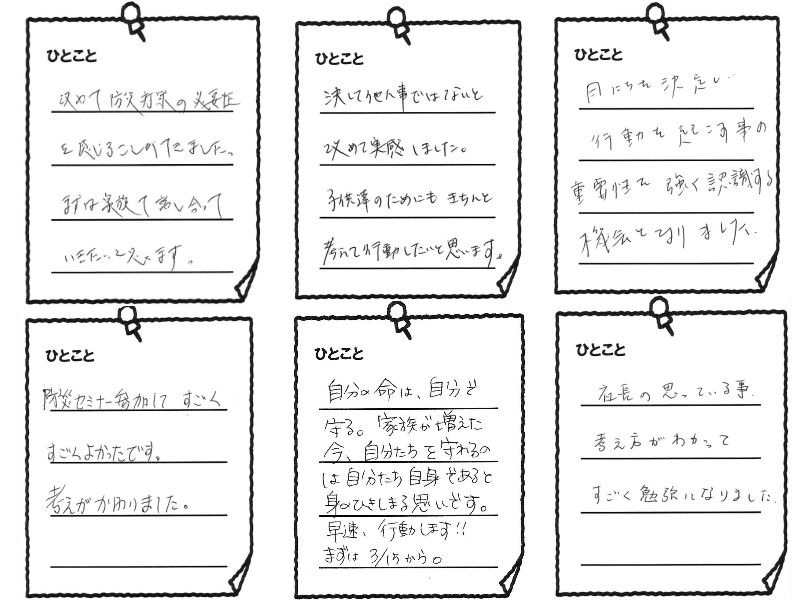 ひとこと
改めて防災対策の必要性
を感じることができました。
まずは家族で話し合って
いきたいと思います。
ひとこと
決して他人事ではないと
改めて実感しました。
子供達のためにも きちんと
考えて行動したいと思います。
ひとこと
日にちを決定し
行動を起こす事の
重要性を強く認識する
機会となりました。
ひとこと
防災セミナー参加して すごく
すごくよかったです。
考えがかわりました。
ひとこと
自分の命は、自分で
守る。家族が増えた
今、自分たちを守れるの
は自分たち自身であると
身のひきしまる思いです。
早速、行動します!!
まずは 3/15から。
ひとこと
社長の思っている事、
考え方がわかって
すごく勉強になりました。